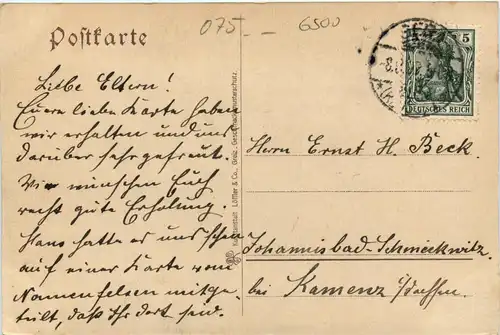 Postkarte
075 - 6500
GERA
5
DEUTSCHES REICH
Liebe Eltern!
Eure liebe Karte haben
wir erhalten und uns
darüber sehr gefreut.
Wir wünschen Euch
recht gute Erholung.
Hans hatte es uns schon
auf einer Karte vom
Namenfelsen mitge-
teilt, daß Ihr dort seid.
Kunstanstalt Löffler & Co., Greiz. Gesch. Musterschutz.
Herrn Ernst H. Beck.
Johannisbad-Schmeckwitz.
bei Kamenz i/Sachsen.